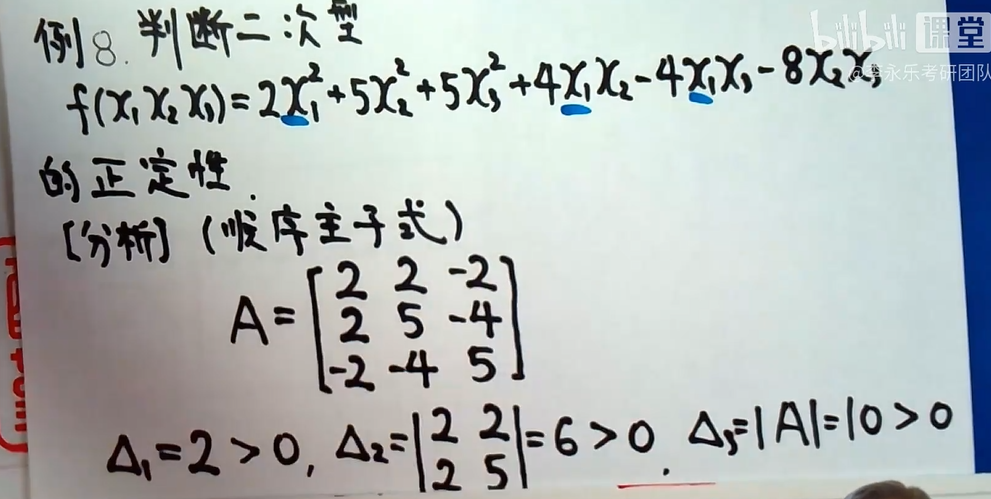 bilibili 课堂
@李永乐考研团队
例8. 判断二次型
f(x₁x₂x₃)=2x₁²+5x₂²+5x₃²+4x₁x₂-4x₁x₃-8x₂x₃
的正定性.
[分析] (顺序主子式)
A=[2 2 -2
2 5 -4
-2 -4 5]
Δ₁=2>0, Δ₂=|2 2|=6>0. Δ₃=|A|=10>0
|2 5|